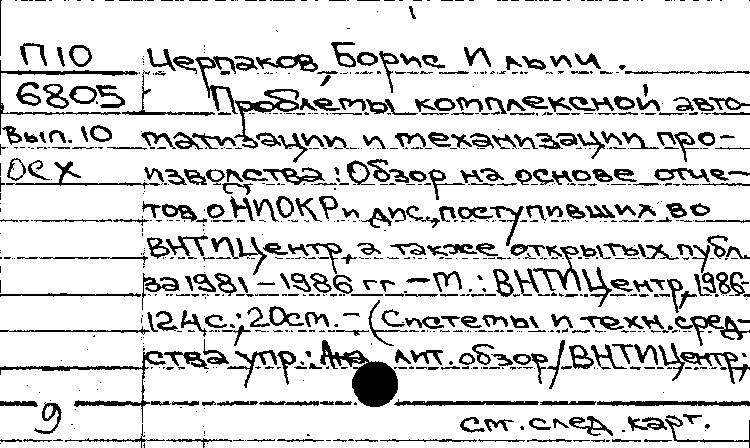 П10 Черпаков, Борис Ильич.
6805 Проблемы комплексной авто-
Вып. 10 матизации и механизации про-
ОСХ изводства: Обзор на основе отче-
тов о НИОКР и дис., поступивших во
ВНТИЦентр, а также открытых публ.
за 1981-1986 гг. - М.: ВНТИЦентр, 1986-
124с.; 20см. - (Системы и техн. сред-
ства упр.: Ана лит. обзор / ВНТИЦентр;
9 см. след. карт.